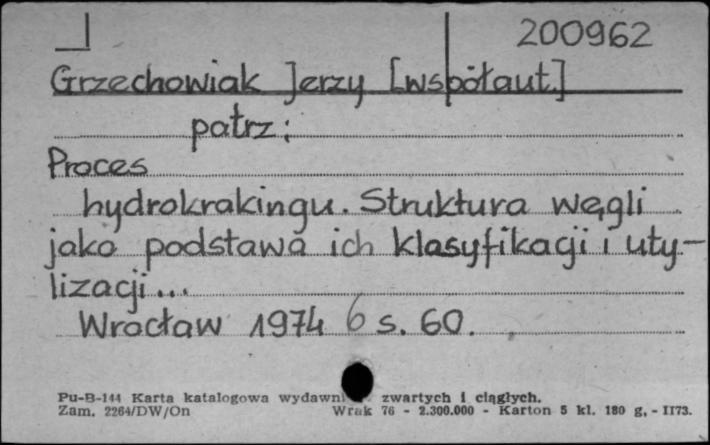 200962
Grzechowiak Jerzy [współaut.]
patrz:
Proces
hydrokrakingu. Struktura węgli
jako podstawa ich klasyfikacji i uty-
lizacji...
Wrocław 1974 6 s. 60.
Pu-B-144 Karta katalogowa wydawni zwartych i ciągłych.
Zam. 2264/DW/On Wrak 76 - 2.300.000 - Karton 5 kl. 180 g. - II73.